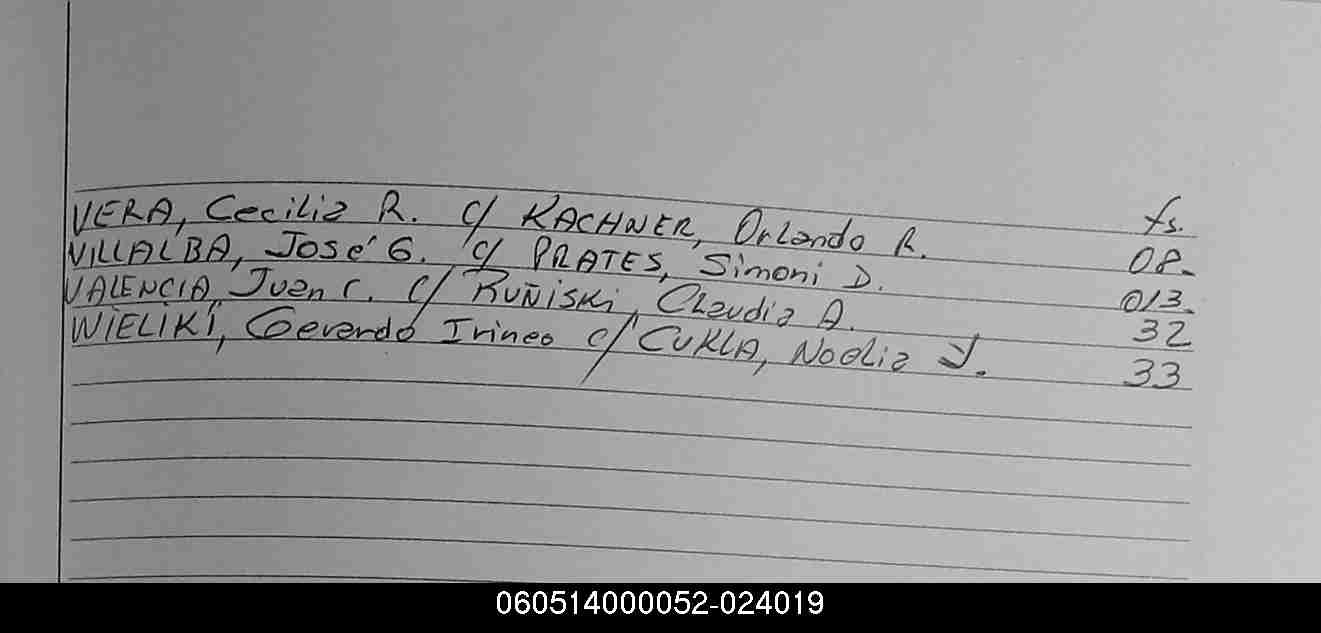 fs.
VERA, Cecilia R. c/ KACHNER, Orlando R. 08.
VILLALBA, José G. c/ PRATES, Simoni D. 013.
VALENCIA, Juan C. c/ RUÑISKI, Claudia A. 32
WIELIKI, Gerardo Irineo c/ CUKLA, Noelia Y. 33
060514000052-024019